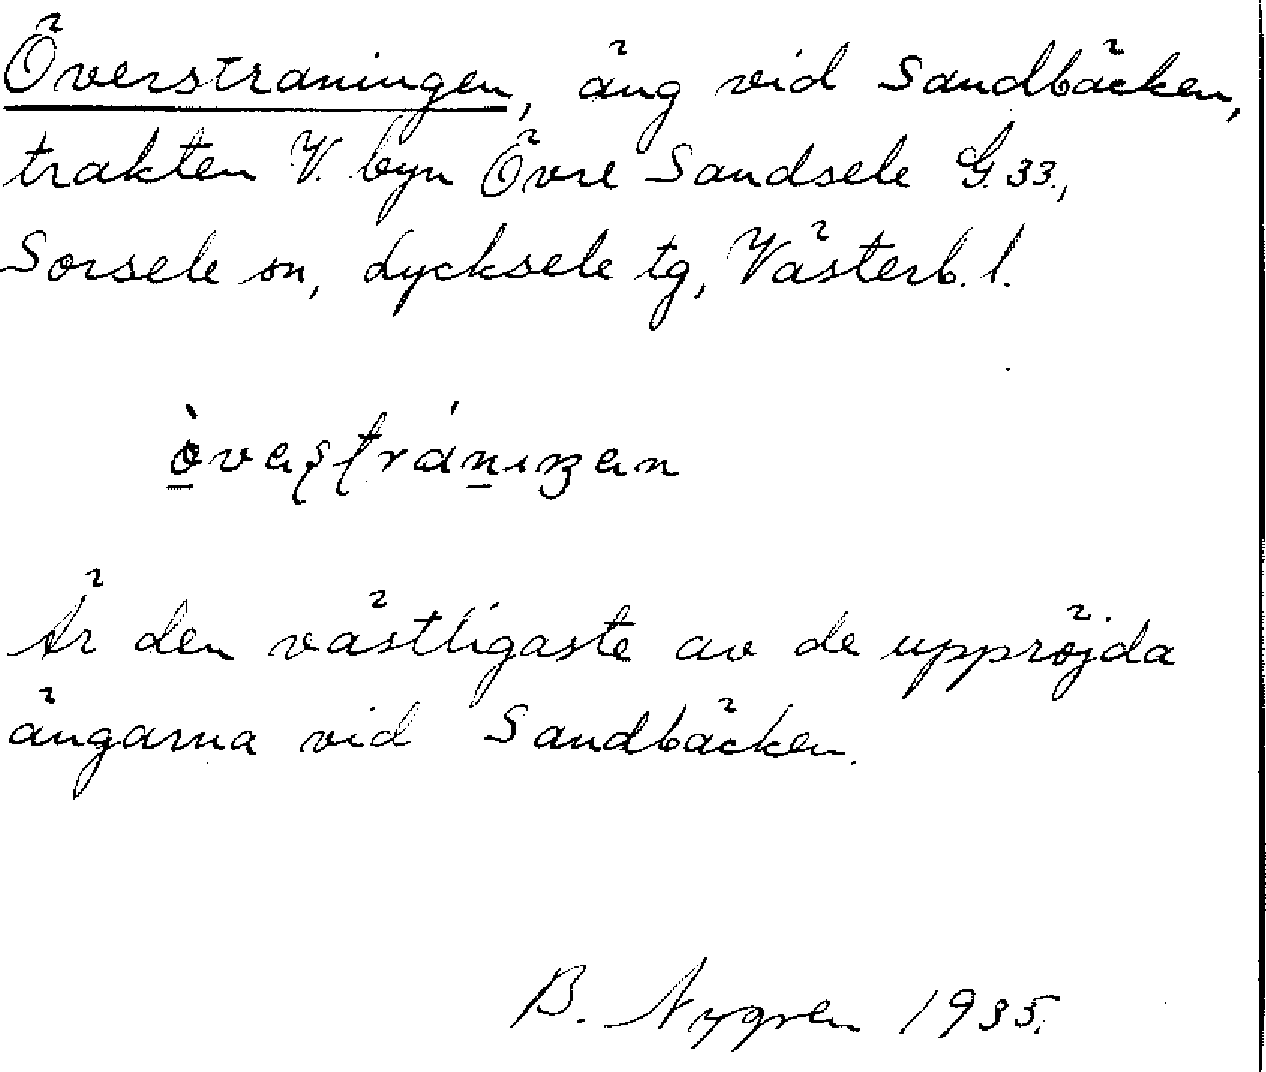 Överstraningen, äng vid Sandbäcken,
trakten V. byn Övre Sandsele G. 33.,
Sorsele sn, Lycksele tg, Västerb. l.
Är den västligaste av de uppröjda
ängarna vid Sandbäcken.
B. Nygren 1935.